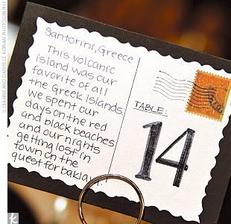 Santorini, Greece
This volcanic
island was our
favorite of all
the Greek Islands.
We spent our
days on the red
and black beaches
and our nights
getting lost in
town on the
quest for baklava.
TABLE:
14